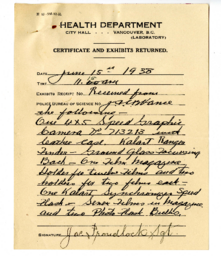 HEALTH DEPARTMENT
CITY HALL VANCOUVER, B.C.
(LABORATORY)
CERTIFICATE AND EXHIBITS RETURNED.
DATE June 15th 1938
To
EXHIBITS RECEIPT NO. Received from
POLICE BUREAU OF SCIENCE NO.
the following -
One Speed Graphic
Camera No 713213 and
leather case, Kalart Range
Finder - Ground Glass Focusing
Back - One Film Magazine
Holder for twelve films and two
holders for two films each -
One Kalart Synchronizer Speed
Flash - Seven Films in Magazine
and two Photo Flash Bulbs.
SIGNATURE Joe Sgt